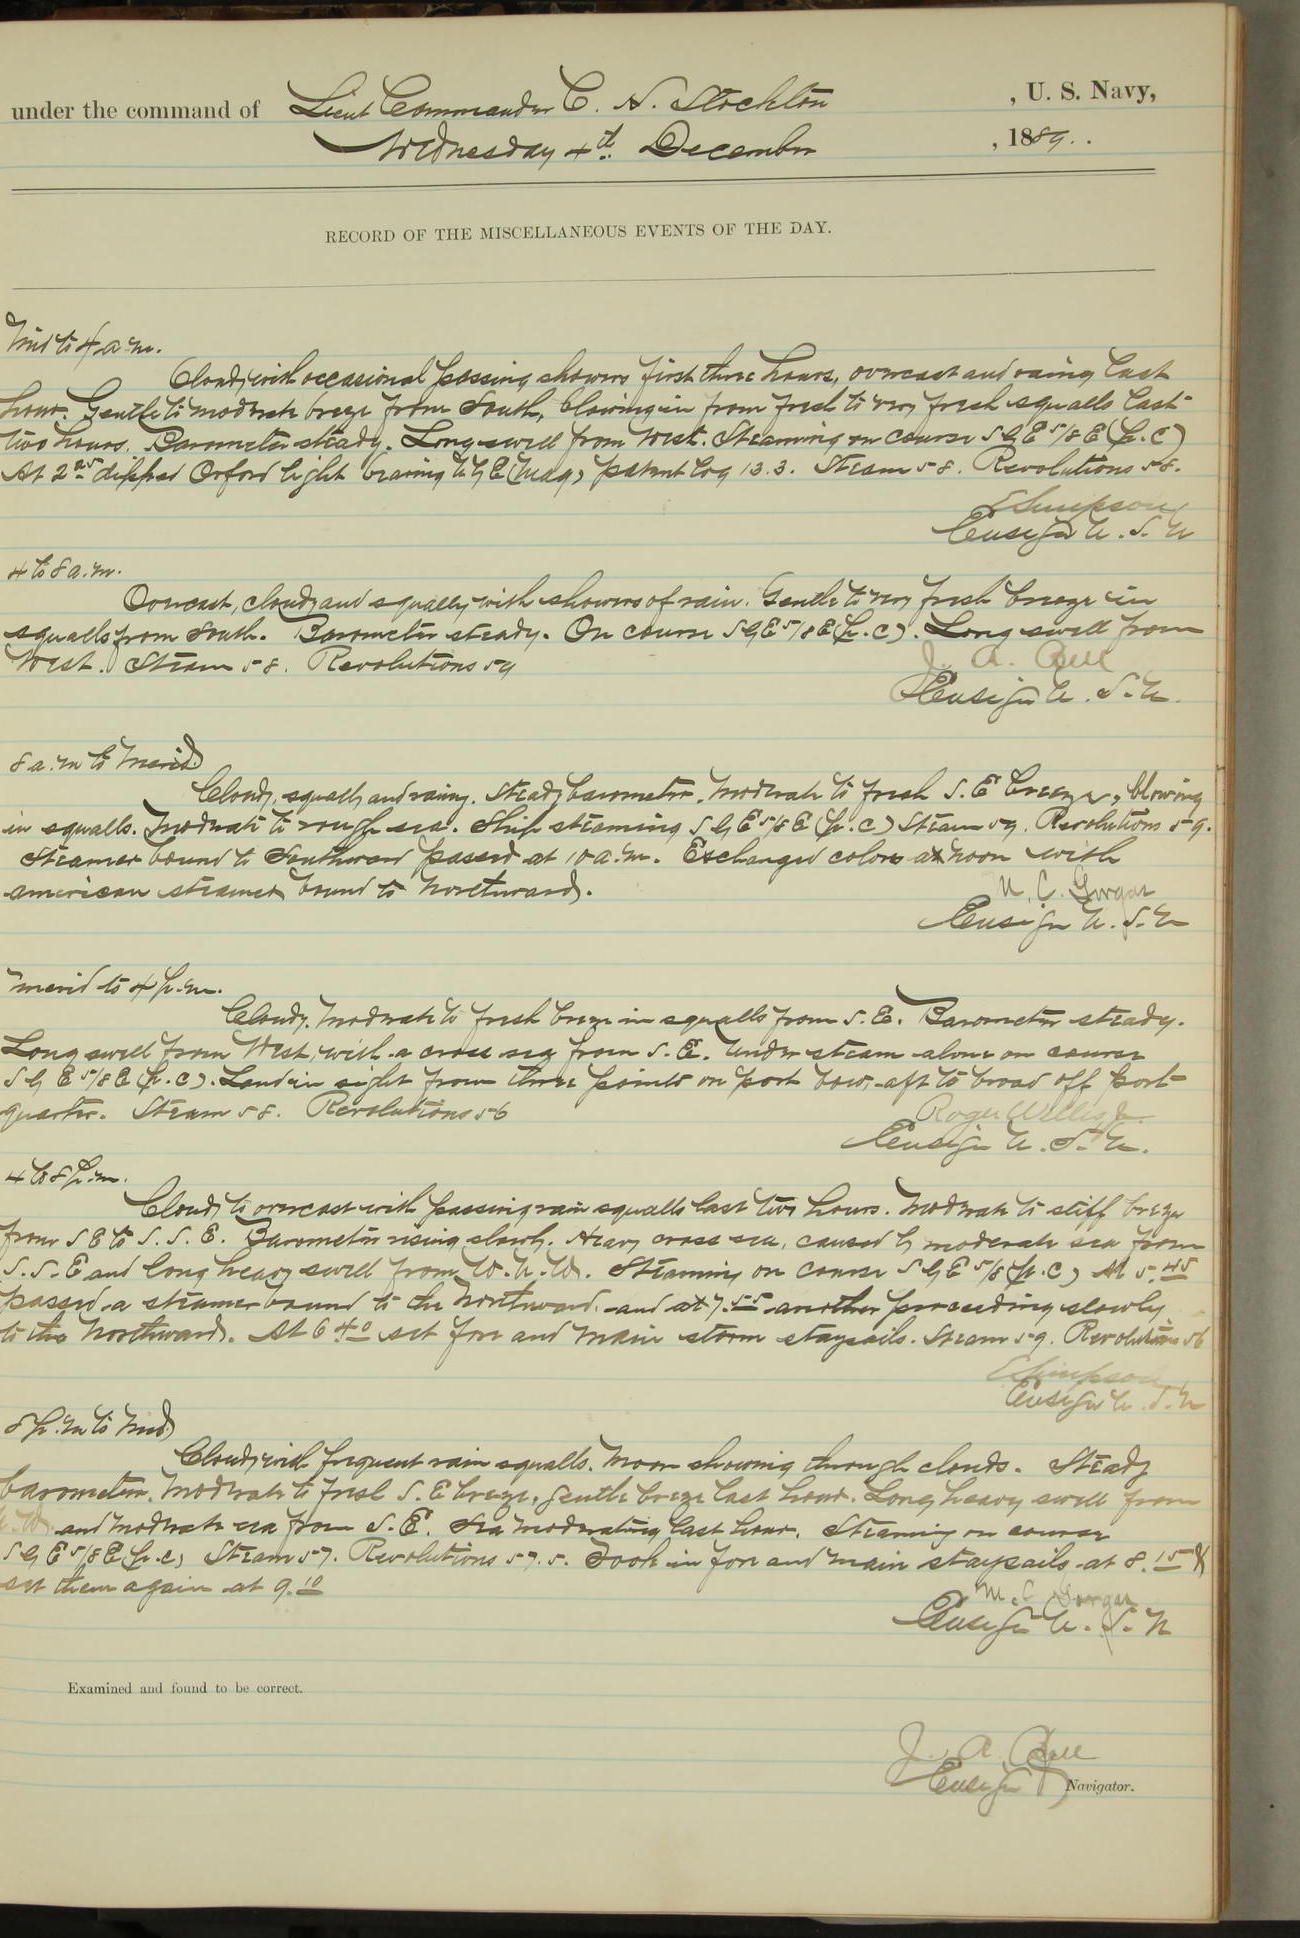 under the command of Lieut Commander C. H. Stockton , U. S. Navy,
Wednesday 4th. December , 1889..
RECORD OF THE MISCELLANEOUS EVENTS OF THE DAY.
Mid to 4 a.m.
Cloudy with occasional passing showers first three hours, overcast and rainy last
hour. Gentle to moderate breeze from South, blowing in from fresh to very fresh squalls last
two hours. Barometer steady. Long swell from West. Steaming on course S by E 5/8 E (p.c)
At 2 25 dipped Orford light bearing N by E (Mag) patent log 13.3. Steam 58. Revolutions 58.
E Simpson
Ensign U. S. N
4 to 8 a.m.
Overcast, cloudy and squally with showers of rain. Gentle to very fresh breeze in
squalls from South. Barometer steady. On course S by E 5/8 E (p.c). Long swell from
West. Steam 58. Revolutions 59
J. A. Bell
Ensign U. S. N.
8 a.m to Merid
Cloudy, squally and rainy. Steady barometer. Moderate to fresh S.E breeze, blowing
in squalls. Moderate to rough sea. Ship steaming S by E 5/8 E (p.c) Steam 59. Revolutions 59.
Steamer bound to Southward passed at 10 a.m. Exchanged colors at noon with
american steamer bound to Northward.
M. C. Gorgas
Ensign U. S. N
Merid to 4 p.m.
Cloudy. Moderate to fresh breeze in squalls from S. E. Barometer steady.
Long swell from West, with a cross sea from S. E. Under steam alone on course
S by E 5/8 E (p.c). Land in sight from three points on port bow, aft to broad off port
quarter. Steam 58. Revolutions 56
Roger Welles Jr.
Ensign U. S. N.
4 to 8 p.m.
Cloudy to overcast with passing rain squalls last two hours. Moderate to stiff breeze
from S E to S. S. E. Barometer rising slowly. Heavy cross sea, caused by moderate sea from
S. S. E and long heavy swell from W. N. W. Steaming on course S by E 5/8 (p.c) At 5.45
passed a steamer bound to the Northward and at 7.55 another proceeding slowly
to the Northward. At 6 40 set fore and main storm staysails. Steam 59. Revolutions 56
E Simpson
Ensign U. S. N
8 p.m to Mid
Cloudy with frequent rain squalls. Moon showing through clouds. Steady
barometer. Moderate to fresh S. E breeze, gentle breeze last hour. Long heavy swell from
and moderate sea from S. E. Sea moderating last hour. Steaming on course
S by E 5/8 E (p.c) Steam 57. Revolutions 57.5. Took in fore and main staysails at 8.15 &
set them again at 9.10
M. C Gorgas
Ensign U. S. N
Examined and found to be correct.
J. A. Bell
Ensign Navigator.